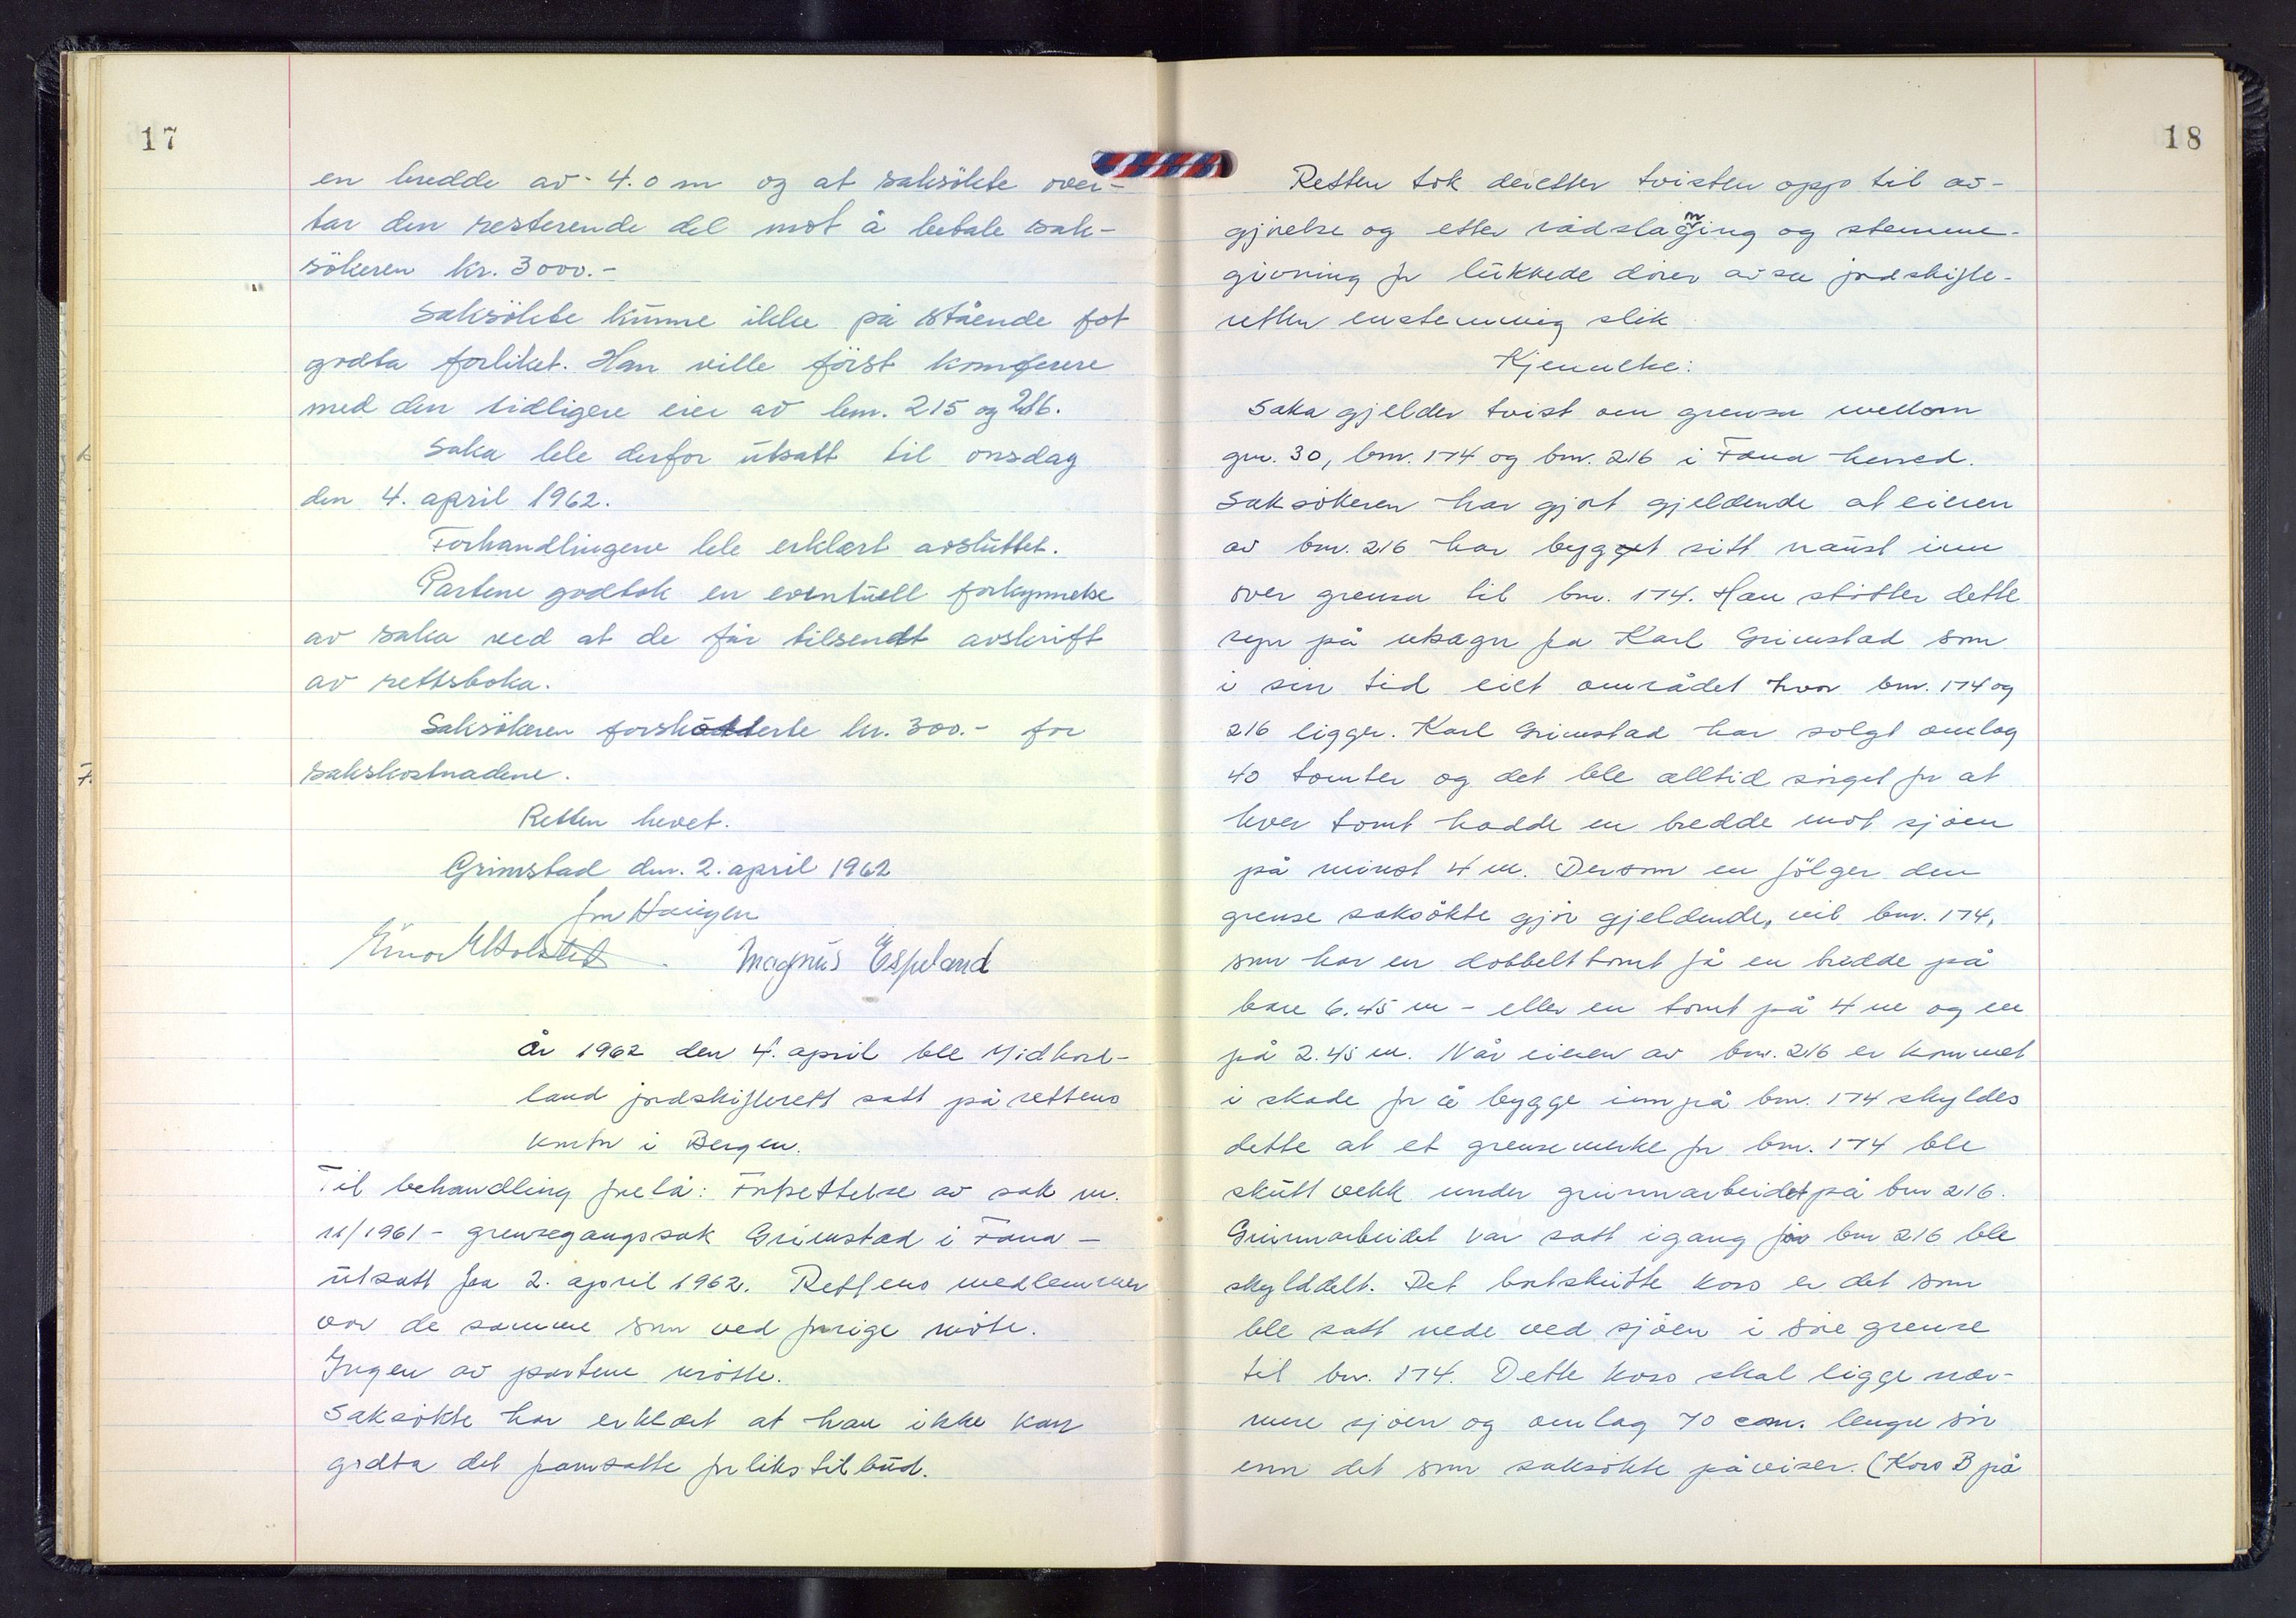 17
en bredde av 4.0 m og at saksökte over-
tar den resterende del mot å betale sak-
sökeren kr. 3000.-
Saksökte kunne ikke på stående fot
godta forliket. Han ville först konferere
med den tidligere eier av bnr. 215 og 216.
Saka ble derfor utsatt til onsdag
den 4. april 1962.
Forhandlingene ble erklært avsluttet.
Partene godtok en eventuell forkynnelse
av saka ved at de får tilsendt avskrift
av rettsboka.
Saksökeren forskotterte kr. 300.- for
sakskostnadene.
Retten hevet.
Grimstad den 2. april 1962
Jon Haugen
Magnus Espeland
År 1962 den 4. april ble Midhord-
land jordskifterett satt på rettens
kontor i Bergen.
Til behandling forelå: Fortsettelse av sak nr.
11/1961 - grensegangssak Grimstad i Fana -
utsatt fra 2. april 1962. Rettens medlemmer
var de samme som ved forrige möte.
Ingen av partene mötte.
Saksökte har erklært at han ikke kan
godta det framsatte forlikstilbud.
18
Retten tok deretter tvisten opp til av-
gjörelse og etter rådslagning og stemme-
givning for lukkede dörer avsa jordskifte-
retten enstemmig slik
Kjennelse:
Saka gjelder tvist om grensa mellom
gnr. 30, bnr. 174 og bnr. 216 i Fana herred.
Saksökeren har gjort gjeldende at eieren
av bnr. 216 har bygget sitt naust inn
over grensa til bnr. 174. Han stötter dette
syn på utsagn fra Karl Grimstad som
i sin tid eiet området hvor bnr. 174 og
216 ligger. Karl Grimstad har solgt omlag
40 tomter og det ble alltid sörget for at
hver tomt hadde en bredde mot sjöen
på minst 4 m. Dersom en fölger den
grense saksökte gjör gjeldende, vil bnr. 174,
som har en dobbelttomt få en bredde på
bare 6.45 m - eller en tomt på 4 m og en
på 2.45 m. Når eieren av bnr. 216 er kommet
i skade for å bygge inn på bnr. 174 skyldes
dette at et grensemerke for bnr. 174 ble
skutt vekk under grunnarbeidet på bnr 216.
Grunnarbeidet var satt igang för bnr 216 ble
skylddelt. Det bortskutte kors er det som
ble satt nede ved sjöen i söre grense
til bnr. 174. Dette kors skal ligge nær-
mere sjöen og omlag 70 cm. lengre sör
enn det som saksökte påviser. (Kors B på